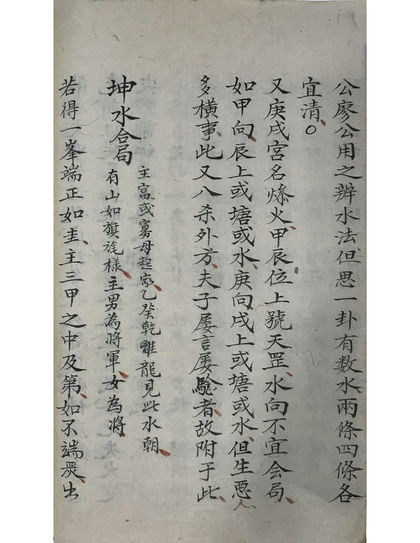 公廖公用之辨水法但思一卦有数水兩條四條各
宜清○
又庚戌宮名燥火甲辰位上號天罡水向不宜会局
如甲向辰上或塘或水庚向戌上或塘或水但生惡人
多横事此又八杀外方夫子屡言屡驗者故附于此
坤水合局
主富或寡母起家乙癸乾離龍見此水朝
有山如旗旄樣主男為將軍女為將
若得一峯端正如圭主三甲之中及第如不端炭出